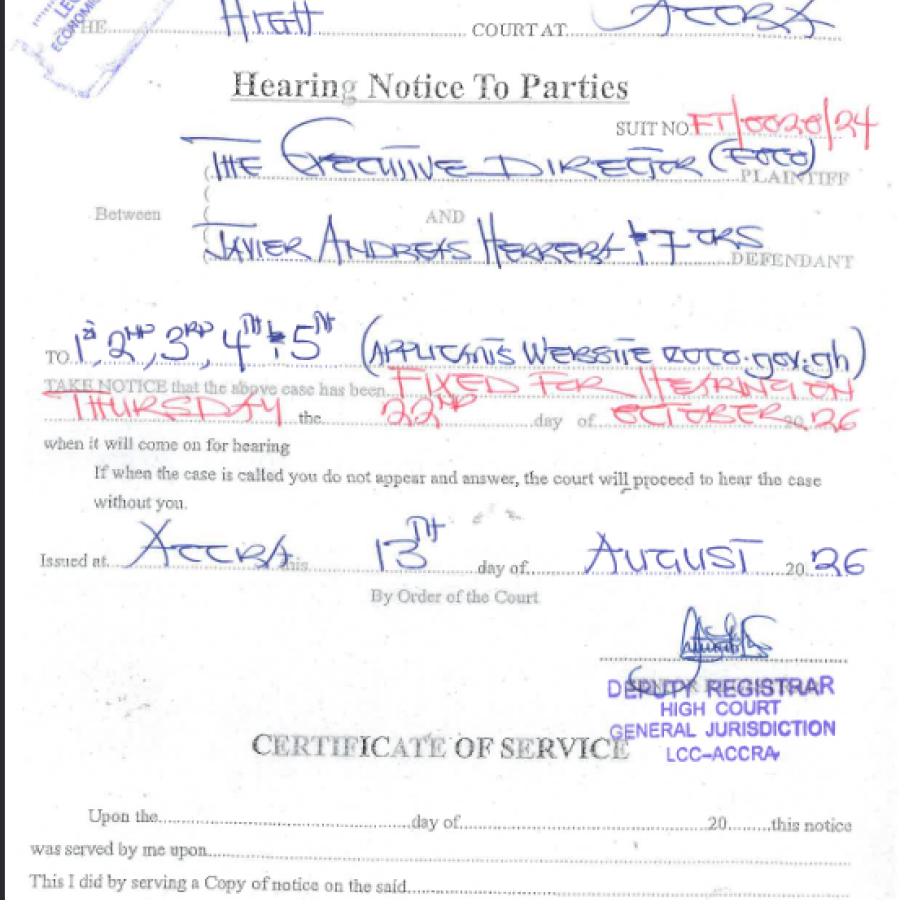 LEG
ECONOMIC
HE.............HIGH.............COURT AT.............ACCRA
Hearing Notice To Parties
SUIT NO FT/0020/24
THE EXECUTIVE DIRECTOR (EOCO)
PLAINTIFF
Between
AND
JAVIER ANDREAS HERRERA & 7 ORS
DEFENDANT
TO 1st, 2ND, 3RD, 4TH & 5TH (APPLICANTS WEBSITE EOCO.gov.gh)
TAKE NOTICE that the above case has been FIXED FOR HEARING ON
THURSDAY the 22ND day of OCTOBER 20 26
when it will come on for hearing
If when the case is called you do not appear and answer, the court will proceed to hear the case
without you.
Issued at ACCRA this 13TH day of AUGUST 20 26
By Order of the Court
DEPUTY REGISTRAR
HIGH COURT
GENERAL JURISDICTION
LCC-ACCRA
CERTIFICATE OF SERVICE
Upon the..............day of..............20........this notice
was served by me upon..............
This I did by serving a Copy of notice on the said..............